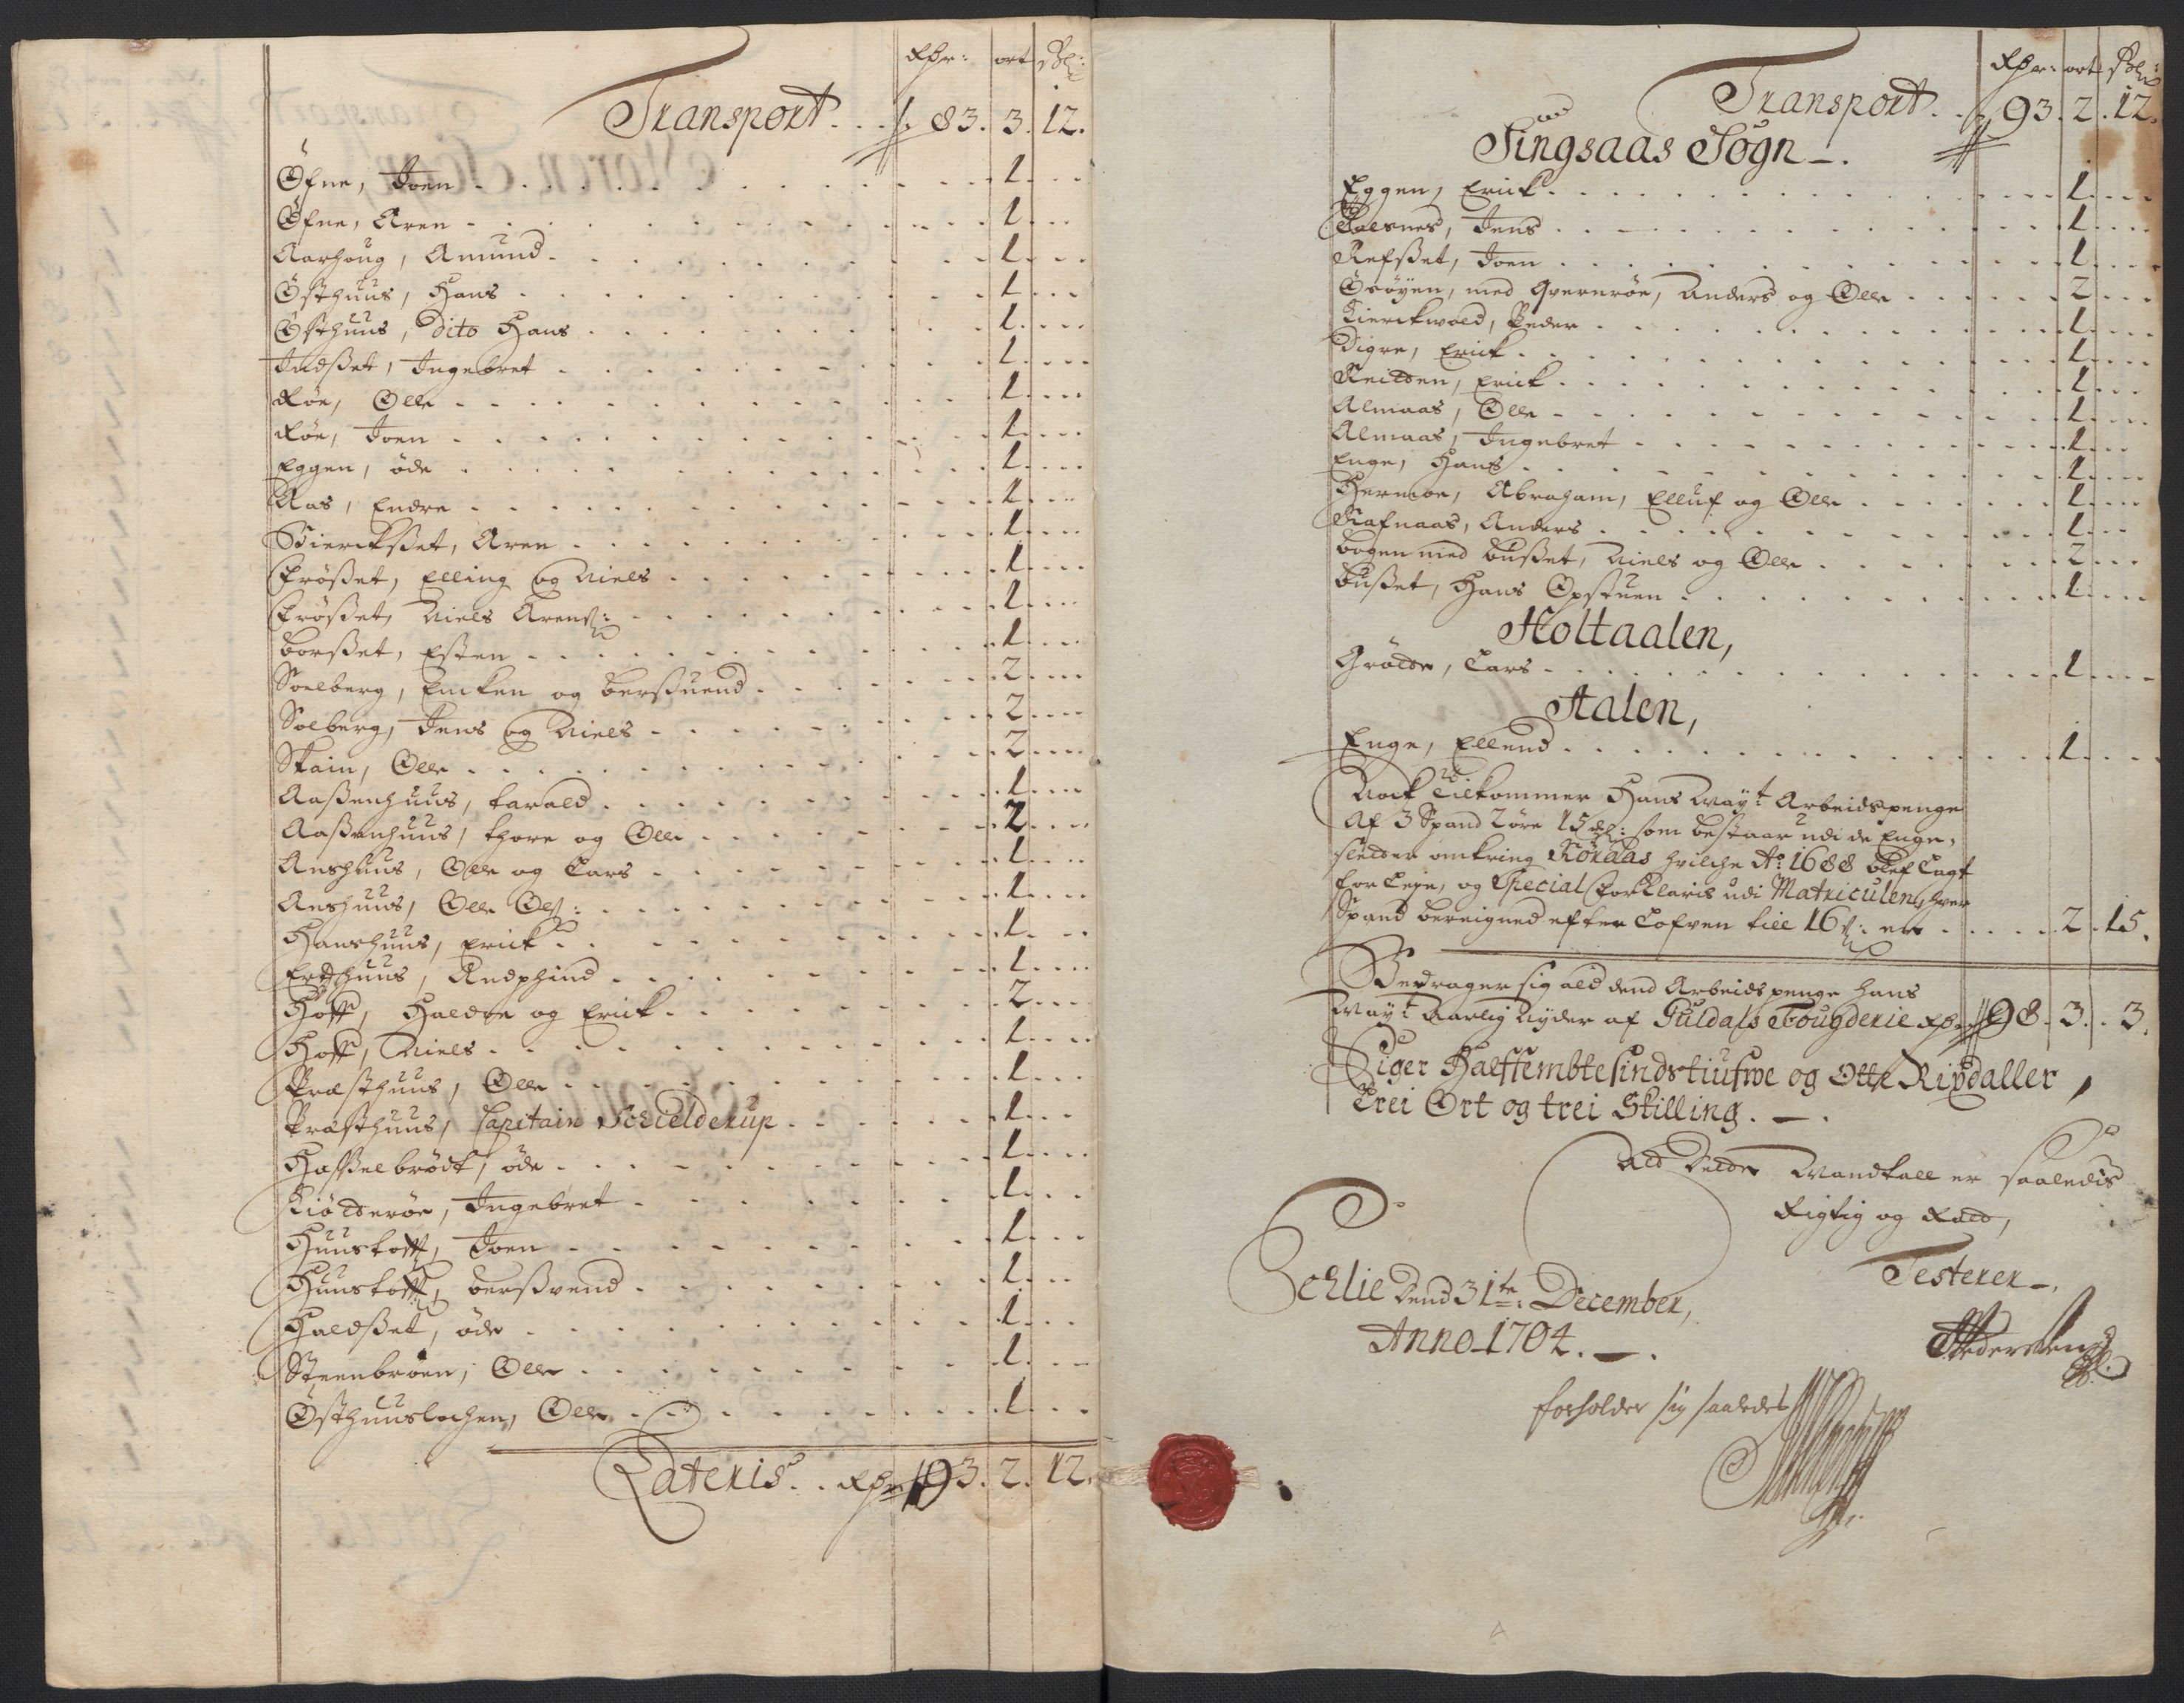 Rdr: ort sk:
Transport . . . 83. 3. 12.
Öfne, Joen . . . 1 . . .
Öfne, Aren . . . 1 . . .
Aarhoug, Amund . . . 1 . . .
Östhuus, Hans . . . 1 . . .
Östhuus, Dito Hans . . . 1 . . .
Indsset, Ingebret . . . 1 . . .
Röe, Olle . . . 1 . . .
Röe, Joen . . . 1 . . .
Eggen, öde . . . 1 . . .
Aas, Endre . . . 1 . . .
Bierchsset, Aren . . . 1 . . .
Frösset, Elling og Niels . . . 1 . . .
Frösset, Niels Arens: . . . 1 . . .
Borsset, Esten . . . 1 . . .
Soelberg, Encken og Berssuend . . . 2 . . .
Solberg, Jens og Niels . . . 2 . . .
Skain, Olle . . . 2 . . .
Aassenhuus, Farald . . . 1 . . .
Aassenhuus, Thore og Olle . . . 2 . . .
Anshuus, Olle og Lars . . . 1 . . .
Anshuus, Olle Ols: . . . 1 . . .
Hanshuus, Erick . . . 1 . . .
Erdshuus, Andphind . . . 1 . . .
Hoff, Haldor og Erick . . . 2 . . .
Hoff, Niels . . . 1 . . .
Præsthuus, Olle . . . 1 . . .
Præsthuus, Capitain Schielderup . . . 1 . . .
Hasselbröck, öde . . . 1 . . .
Kiölderöe, Ingebret . . . 1 . . .
Huustofft, Joen . . . 1 . . .
Huustofft, Berssvend . . . 1 . . .
Haldsset, öde . . . 1 . . .
Steenbroen, Olle . . . 1 . . .
Östhuuslochen, Olle . . . 1 . . .
Lateris . . Rdr 93. 2. 12.
Rdr: ort sk:
Transport . . 93. 2. 12.
Singsaas Sogn -.
Eggen, Erick . . . 1 . . .
Talsnes, Jens . . . 1 . . .
Refsset, Joen . . . 1 . . .
Öröyen, med Qvernröe, Anders og Olle . . . 2 . . .
Kierckvold, Peder . . . 1 . . .
Digre, Erick . . . 1 . . .
Reitten, Erick . . . 1 . . .
Almaas, Olle . . . 1 . . .
Almaas, Ingebret . . . 1 . . .
Enge, Hans . . . 1 . . .
Hermoe, Abraham, Elluf og Olle . . . 1 . . .
Rafnaas, Anders . . . 1 . . .
Bogen med Busset, Niels og Olle . . . 2 . . .
Busset, Hans Opstuen . . . 1 . . .
Holtaalen,
Grötte, Lars . . . 1 . . .
Aalen,
Enge, Ellend . . . 1 . . .
Nock tilkommer Hans Mayt Arbeidspenge
Af 3 Spand 2 öre 15 ml: som bestaar udi de Enge,
sletter omkring Röraas hvilche Ao: 1688 blef Lagt
for Leje, og Special forklaris udi Matriculen, hver
Spand bereigned efter Lofven till 16 s: er . . . 2. 15.
Bedrager sig ald dend Arbeids penge Hans
Mayt Aarlig Nyder af Guldals Fougderie Rdr 98. 3. 3.
Siger Halffembtesindstiufwe og Otte Rixdaller,
Trei Ort og trei Skilling. -.
Att dette Mandtall er saaledis
Rigtig og Rett,
Testerer -.
Schlie Dend 31te: December,
Anno 1704. -.
forholder sig saaledes